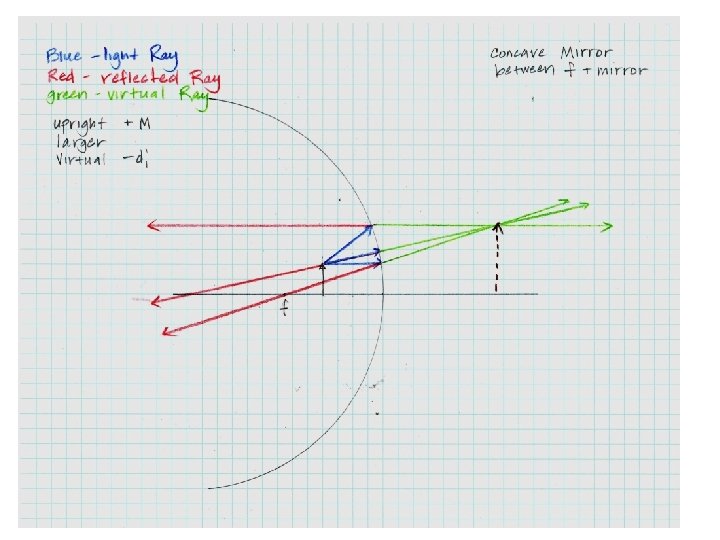 Blue - light Ray
Red - reflected Ray
green - virtual Ray
upright + M
larger
Virtual - di
Concave Mirror
between f + mirror
f